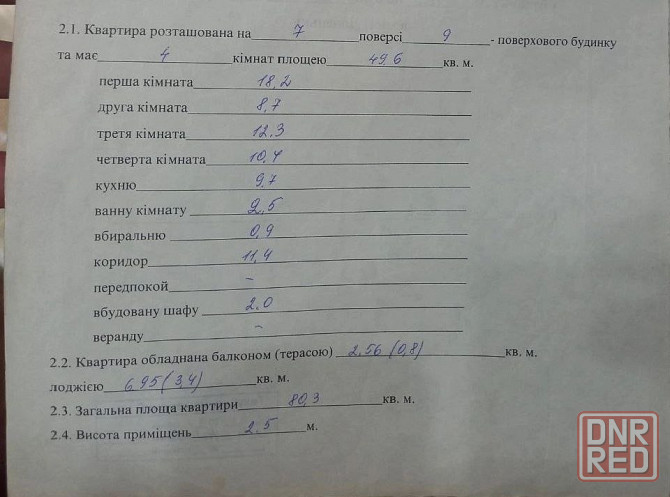 2.1. Квартира розташована на 7 поверсі 9 - поверхового будинку
та має 4 кімнат площею 49.6 кв. м.
перша кімната 18,2
друга кімната 8,7
третя кімната 12.3
четверта кімната 10,4
кухню 9,7
ванну кімнату 2,5
вбиральню 0,9
коридор 11,4
передпокой -
вбудовану шафу 2.0
веранду -
2.2. Квартира обладнана балконом (терасою) 2.56 (0,8) кв. м.
лоджією 6,95 (3,4) кв. м.
2.3. Загальна площа квартири 80,3 кв. м.
2.4. Висота приміщень 2.5 м.
DNR
RED